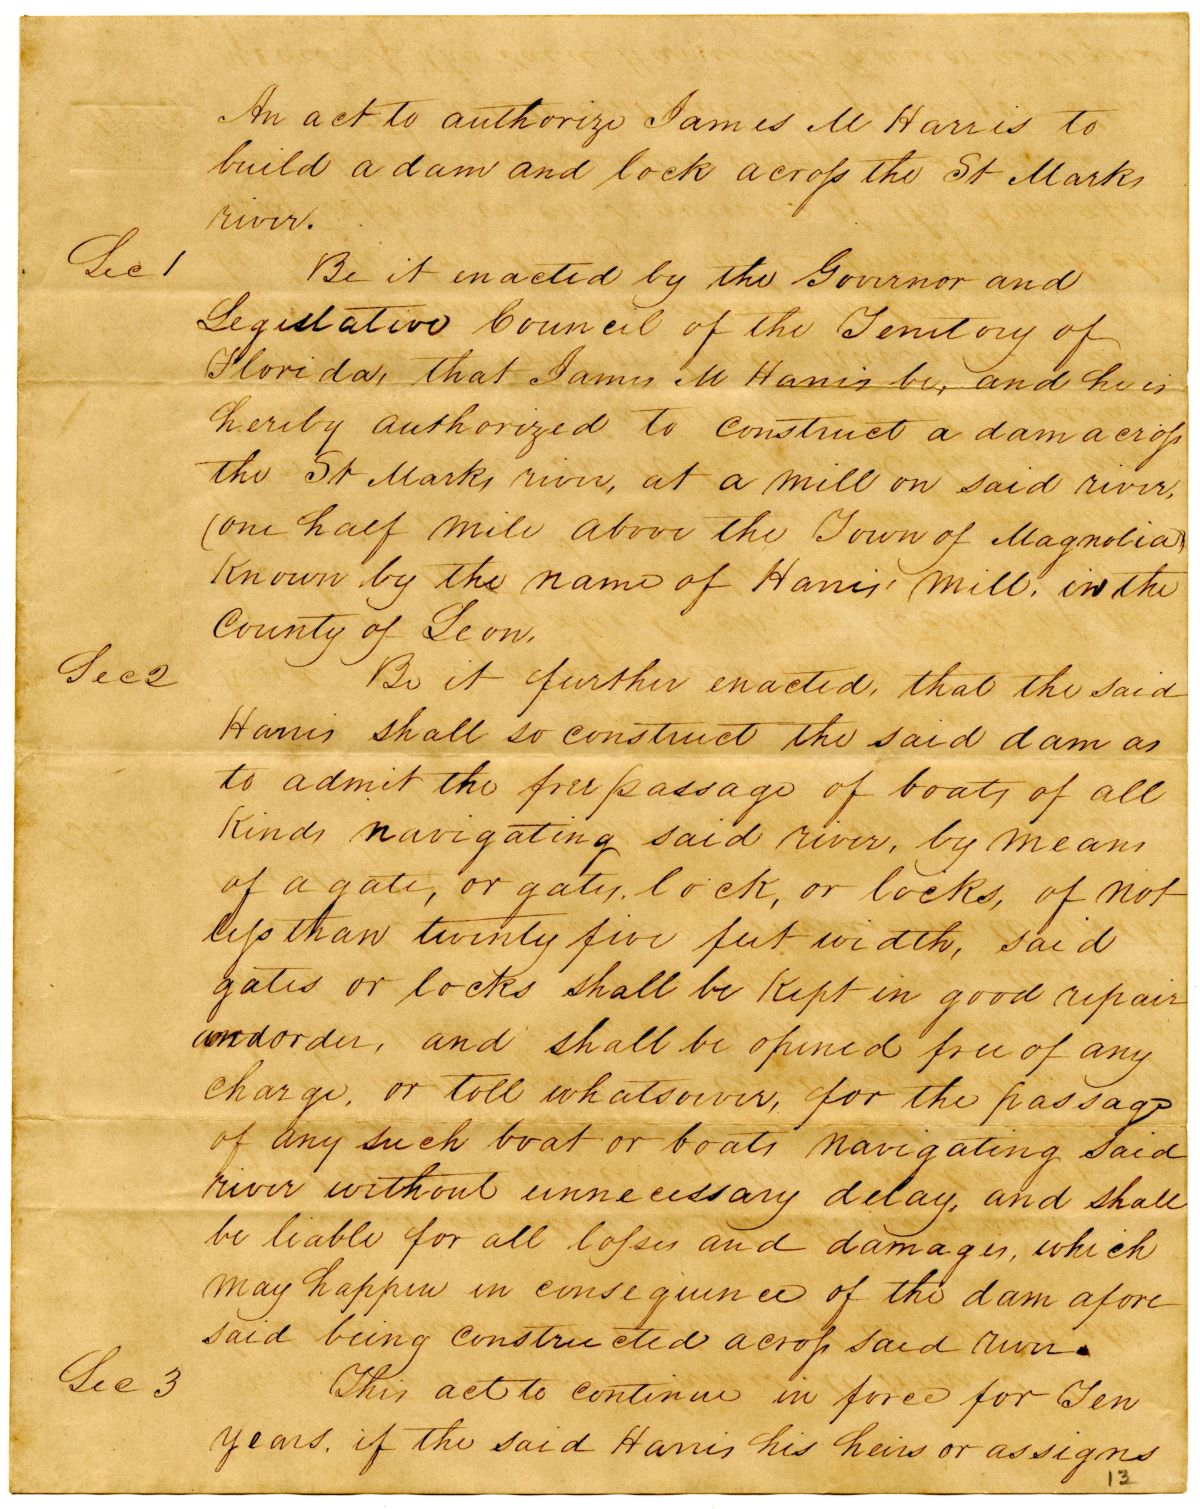 An act to authorize James M Harris to
build a dam and lock across the St Marks
river.
Sec 1 Be it enacted by the Governor and
Legislative Council of the Territory of
Florida, that James M Harris be, and he is
hereby authorized to construct a dam across
the St Marks river, at a mill on said river,
(one half mile above the Town of Magnolia)
Known by the name of Harris' Mill, in the
County of Leon.
Sec 2 Be it further enacted, that the said
Harris shall so construct the said dam as
to admit the free passage of boats of all
Kinds navigating said river, by means
of a gate, or gates, lock, or locks, of not
less than twenty five feet width, said
gates or locks shall be Kept in good repair
and order, and shall be opened free of any
charge, or toll whatsoever, for the passage
of any such boat or boats navigating said
river without unnecessary delay, and shall
be liable for all losses and damages, which
may happen in consequence of the dam afore
said being constructed across said river.
Sec 3 This act to continue in force for Ten
years, if the said Harris his heirs or assigns
13